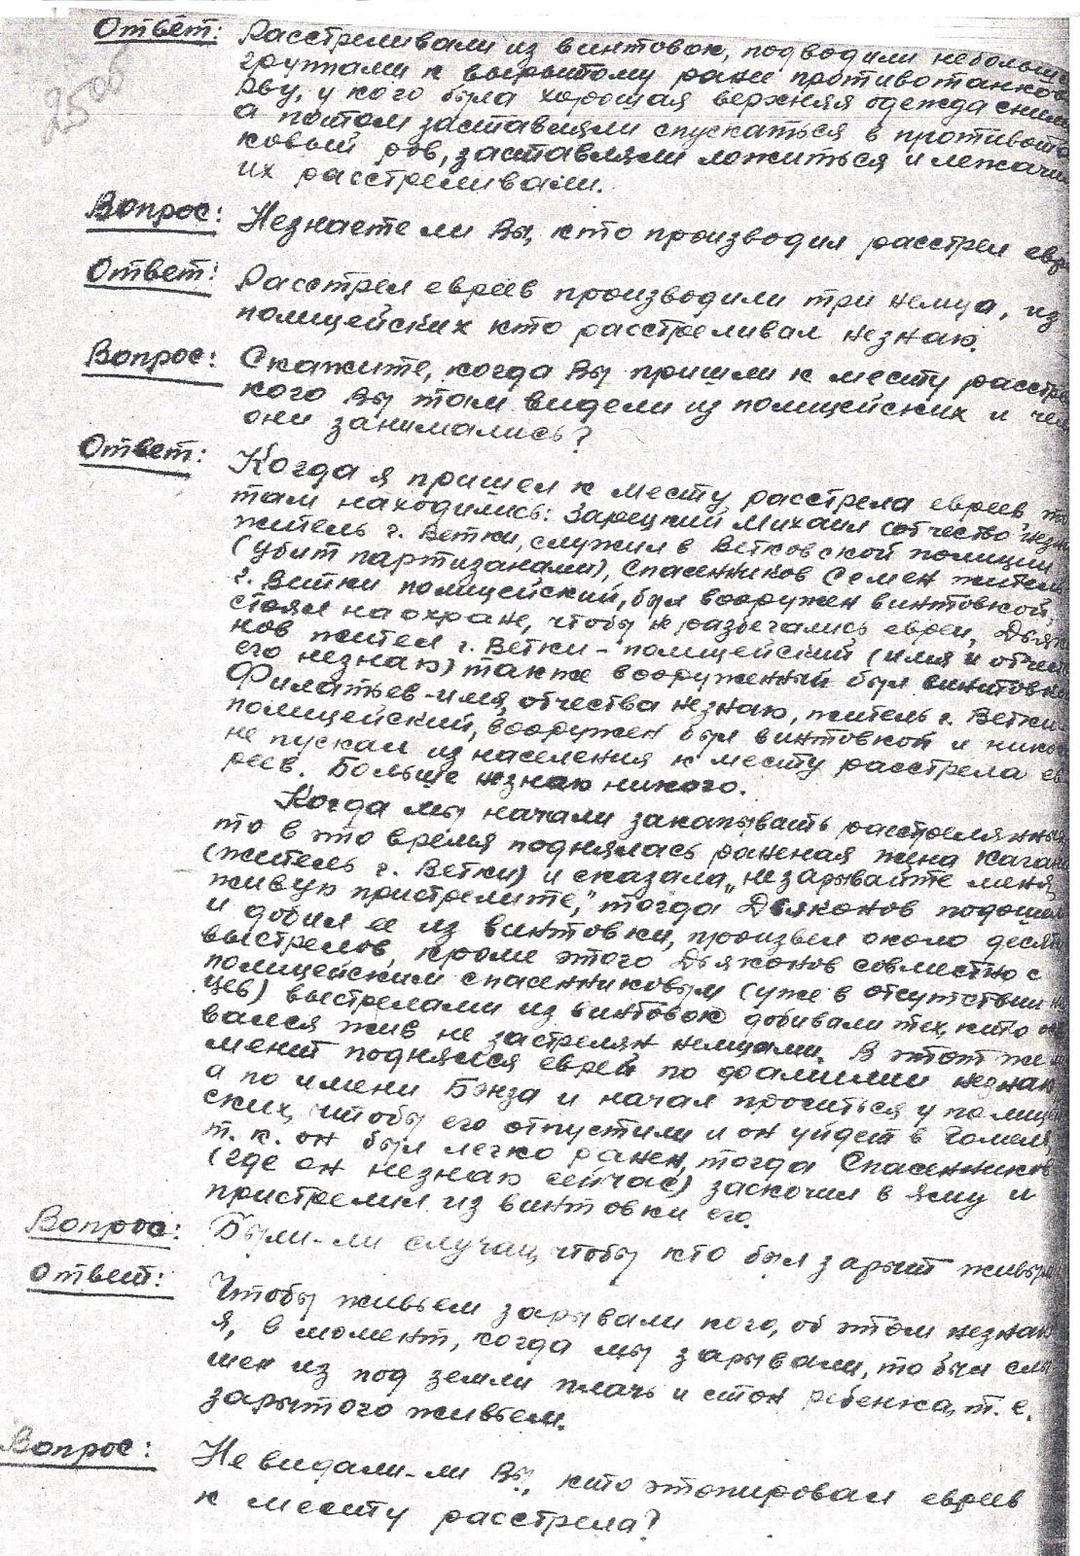 25 об
Ответ: Расстреливали из винтовок, подводили небольши
группами к вырытому ранее противотанково
рву, у кого была хорошая верхняя одежда сним
а потом заставляли спускаться в противота
ковый ров, заставляли ложиться и лежачи
их расстреливали.
Вопрос: Незнаете ли Вы, кто производил расстрел евр
Ответ: Расстрел евреев производили три немца, из
полицейских кто расстреливал незнаю.
Вопрос: Скажите, когда Вы пришли к месту расстре
кого Вы там видели из полицейских и чем
они занимались?
Ответ: Когда я пришел к месту расстрела евреев то
там находились: Зарецкий Михаил (отчество незн
житель г. Ветки, служил в Ветковской полиции
(убит партизанами), Спасенников Семен житель
г. Ветки полицейский, был вооружен винтовкой,
стоял на охране, чтобы не разбегались евреи, Дьяко
нов жител г. Ветки - полицейский (имя и отчест
его незнаю) также вооруженный был винтовко
Филатьев - имя, отчества незнаю, житель г. Ветки
полицейский, вооружен был винтовкой и нико
не пускал из населения к месту расстрела ев
реев. Больше незнаю никого.
Когда мы начали закапывать расстрелянных
то в это время поднялась раненая жена Каган
(житель г. Ветки) и сказала „незарывайте меня
живую пристрелите," тогда Дьяконов подошел
и добил ее из винтовки, произвел около десят
выстрелов, кроме этого Дьяконов совместно с
полицейским Спасенниковым (уже в отсутствии не
цев) выстрелами из винтовок добивали тех, кто ос
вался жив не застрелян немцами. В этот же мо
мент поднялся еврей по фамилии незнаю
а по имени Бэнза и начал проситься у полицей
ских, чтобы его отпустили и он уйдет в Гомель,
т. к. он был легко ранен, тогда Спасенников
(где он незнаю сейчас) заскочил в яму и
пристрелил из винтовки его.
Вопрос: Были-ли случаи, чтобы кто был зарыт живым
Ответ: Чтобы живьем зарывали кого, об этом незнаю
я, в момент, когда мы зарывали, то был слы
шен из под земли плачь и стон ребенка, т. е.
зарытого живьем.
Вопрос: Не видали-ли Вы, кто этопировал евреев
к месту расстрела?